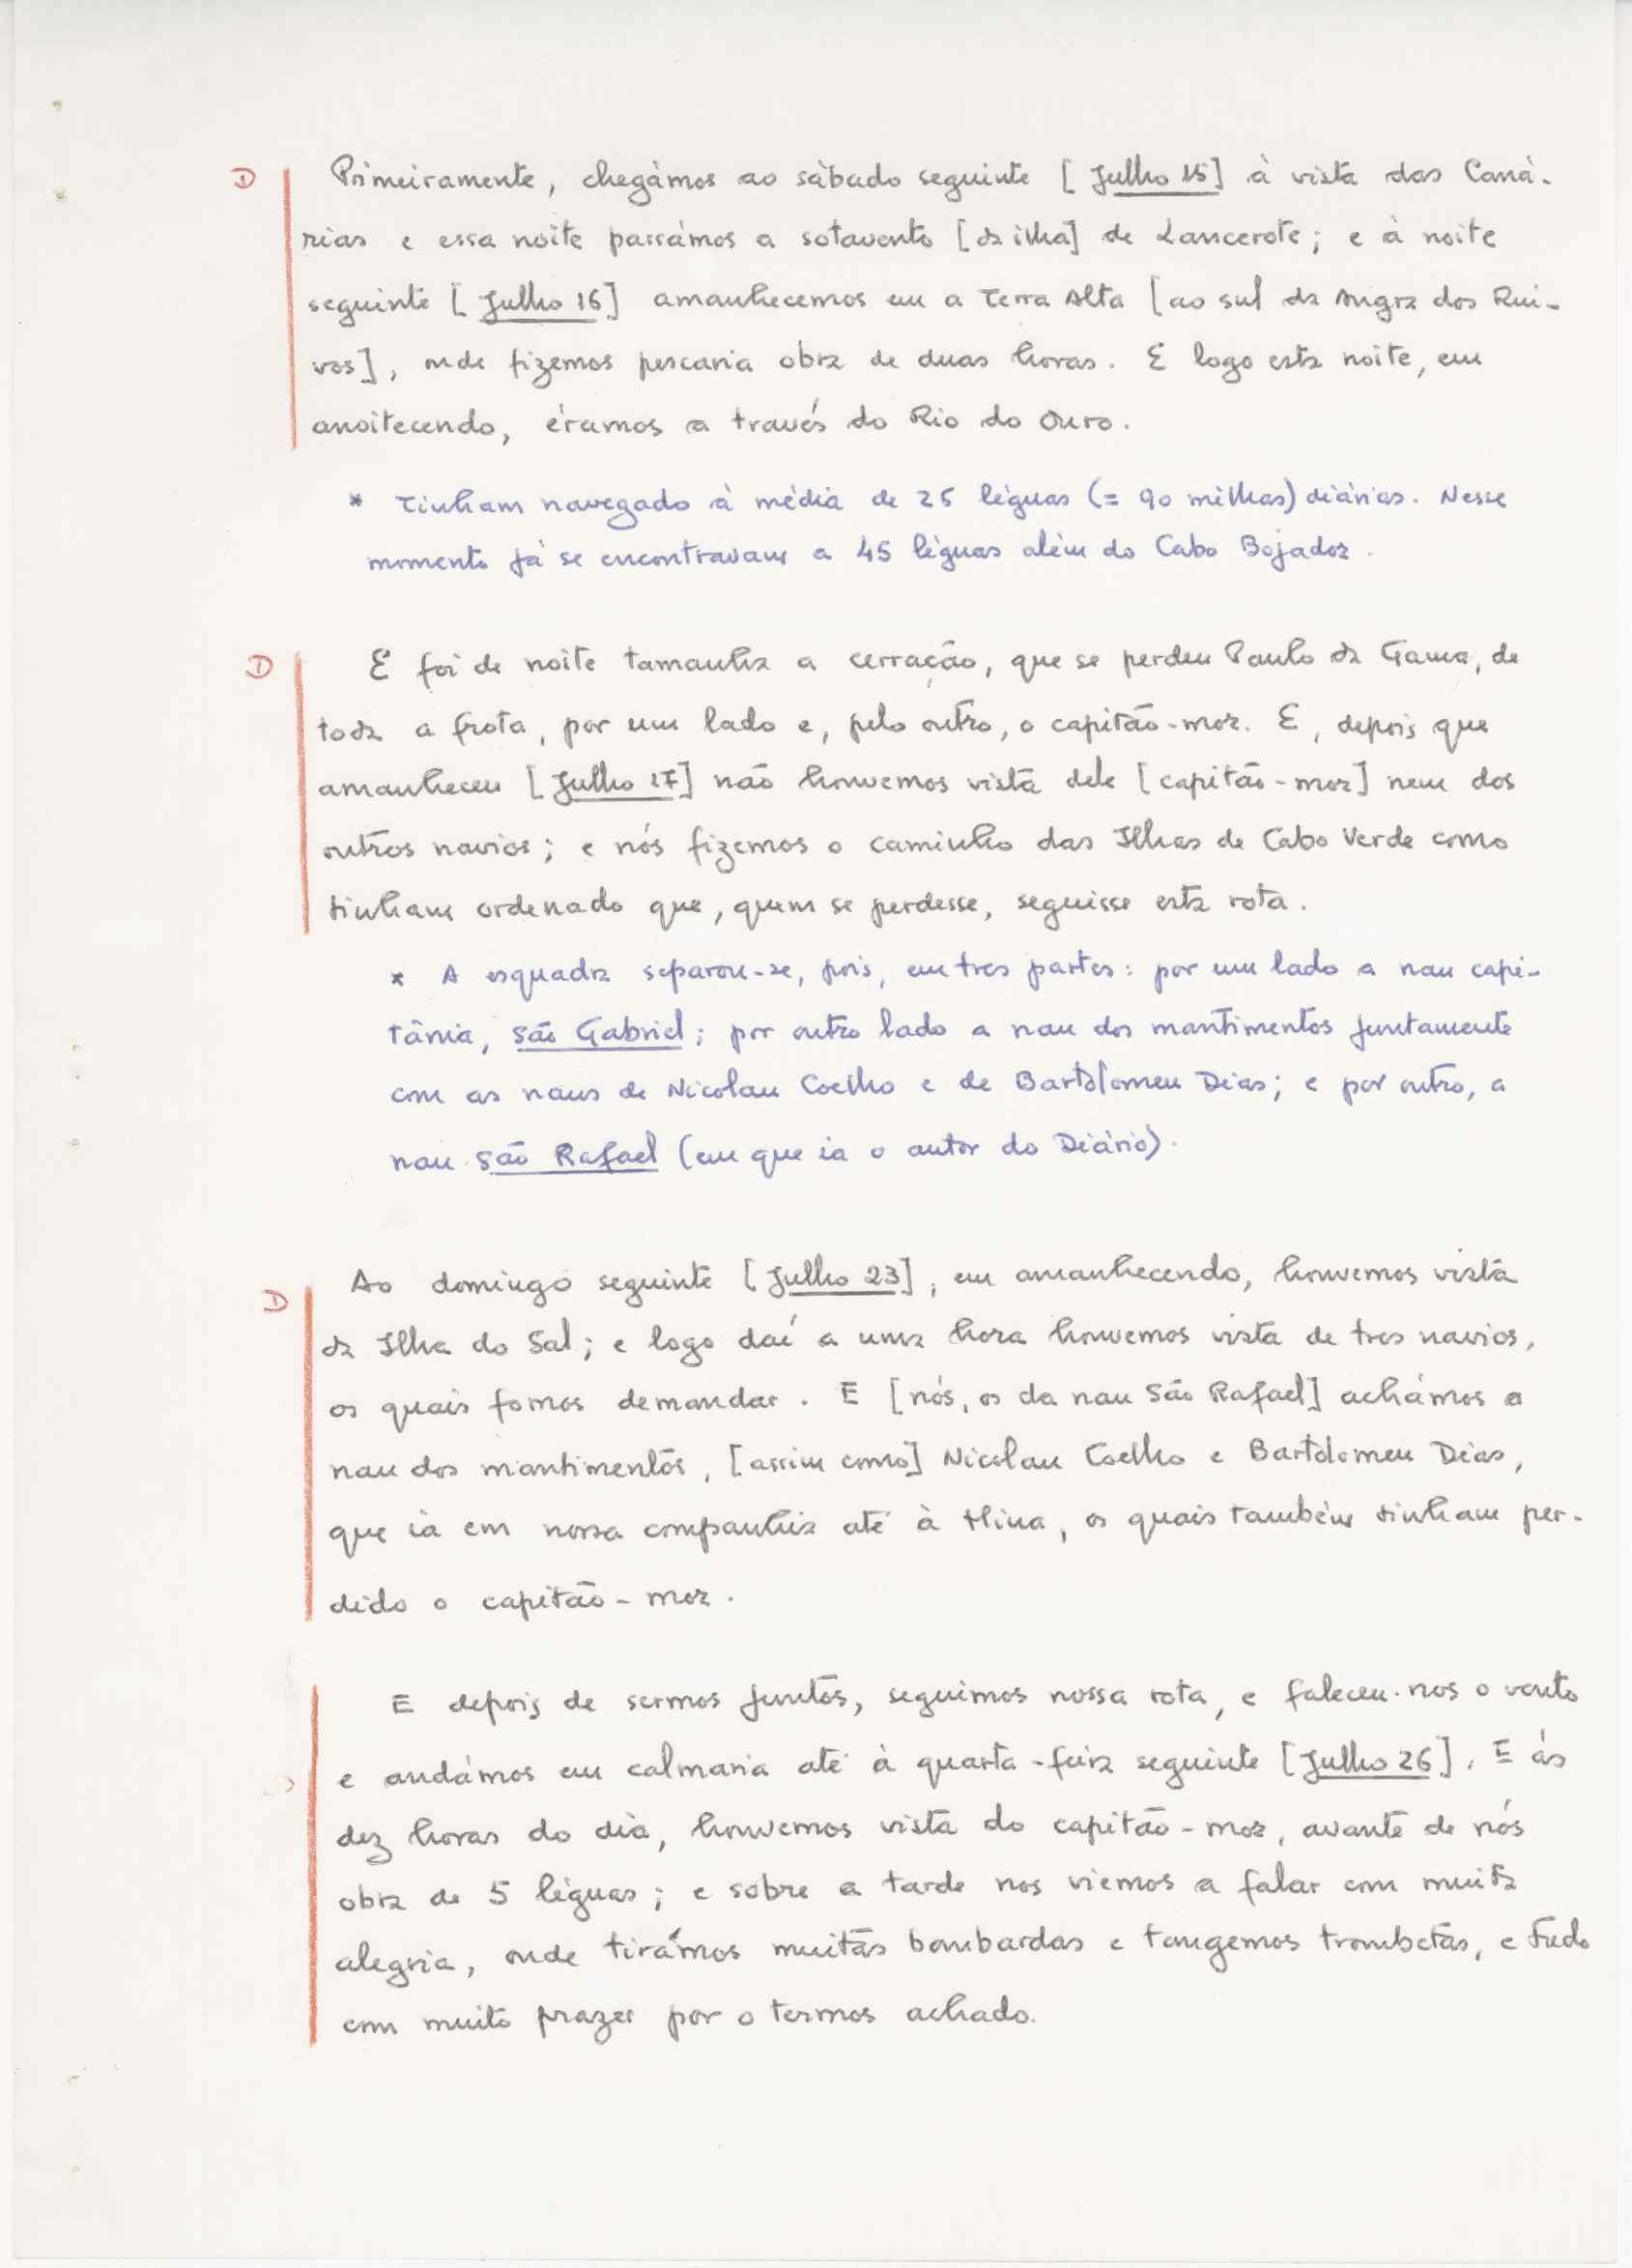 D Primeiramente, chegámos ao sábado seguinte [Julho 15] à vista das Caná-
rias e essa noite passámos a sotavento [da ilha] de Lancerote; e à noite
seguinte [Julho 16] amanhecemos em a Terra Alta [ao sul da Angra dos Rui-
vos], onde fizemos pescaria obra de duas horas. E logo esta noite, em
anoitecendo, éramos a través do Rio do Ouro.
* Tinham navegado à média de 25 léguas (= 90 milhas) diárias. Nesse
momento já se encontravam a 45 léguas além do Cabo Bojador.
D E foi de noite tamanha a cerração, que se perdeu Paulo da Gama, de
toda a frota, por um lado e, pelo outro, o capitão-mor. E, depois que
amanheceu [Julho 17] não houvemos vista dele [capitão-mor] nem dos
outros navios; e nós fizemos o caminho das Ilhas de Cabo Verde como
tinham ordenado que, quem se perdesse, seguisse esta rota.
* A esquadra separou-se, pois, em tres partes: por um lado a nau capi-
tânia, São Gabriel; por outro lado a nau dos mantimentos juntamente
com as naus de Nicolau Coelho e de Bartolomeu Dias; e por outro, a
nau São Rafael (em que ia o autor do Diário).
D Ao domingo seguinte [Julho 23], em amanhecendo, houvemos vista
da Ilha do Sal; e logo daí a uma hora houvemos vista de tres navios,
os quais fomos demandar. E [nós, os da nau São Rafael] achámos a
nau dos mantimentos, [assim como] Nicolau Coelho e Bartolomeu Dias,
que ia em nossa companhia até à Mina, os quais também tinham per-
dido o capitão-mor.
E depois de sermos juntos, seguimos nossa rota, e faleceu-nos o vento
e andámos em calmaria até à quarta-feira seguinte [Julho 26]. E ás
dez horas do dia, houvemos vista do capitão-mor, avante de nós
obra de 5 léguas; e sobre a tarde nos viemos a falar com muita
alegria, onde tirámos muitas bombardas e tangemos trombetas, e tudo
com muito prazer por o termos achado.